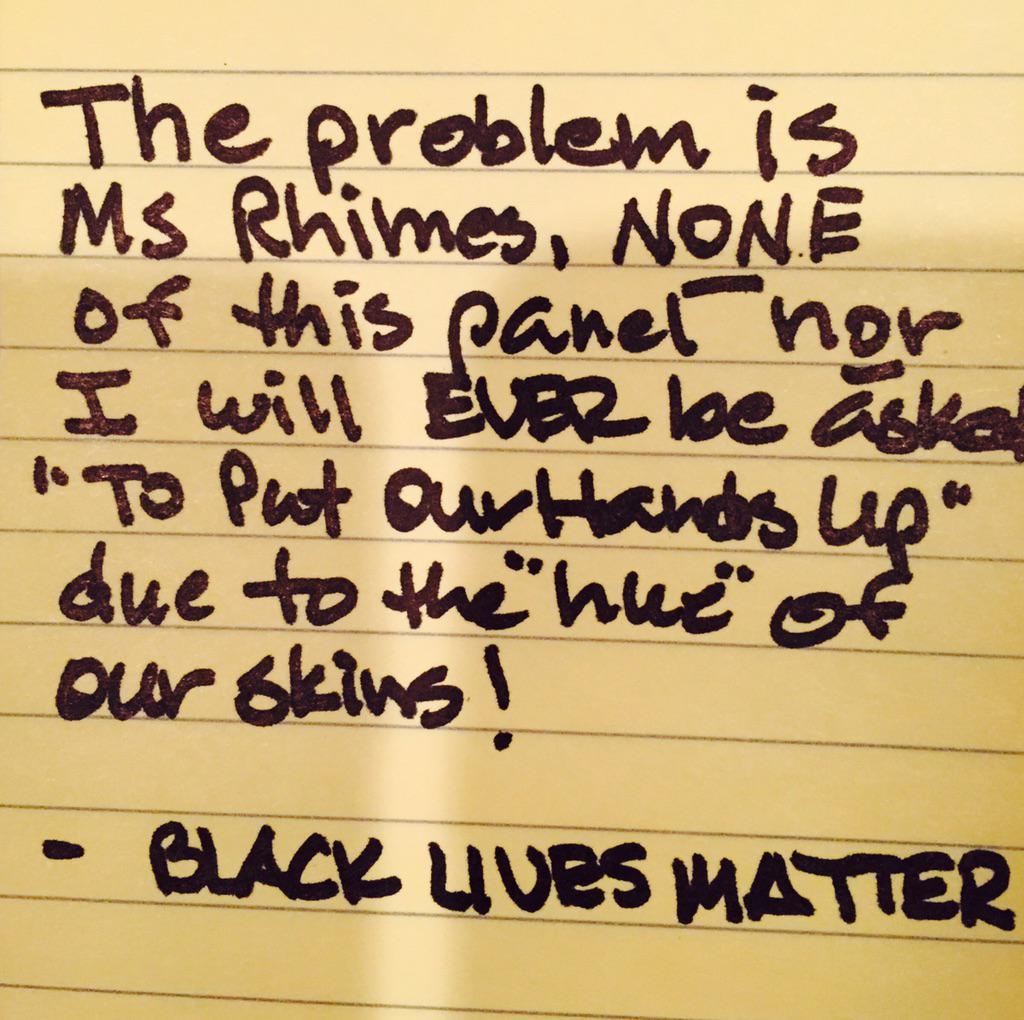 The problem is
Ms Rhimes, NONE
of this panel nor
I will EVER be asked
"To Put Our Hands Up"
due to the "hue" of
our skins!
- BLACK LIVES MATTER